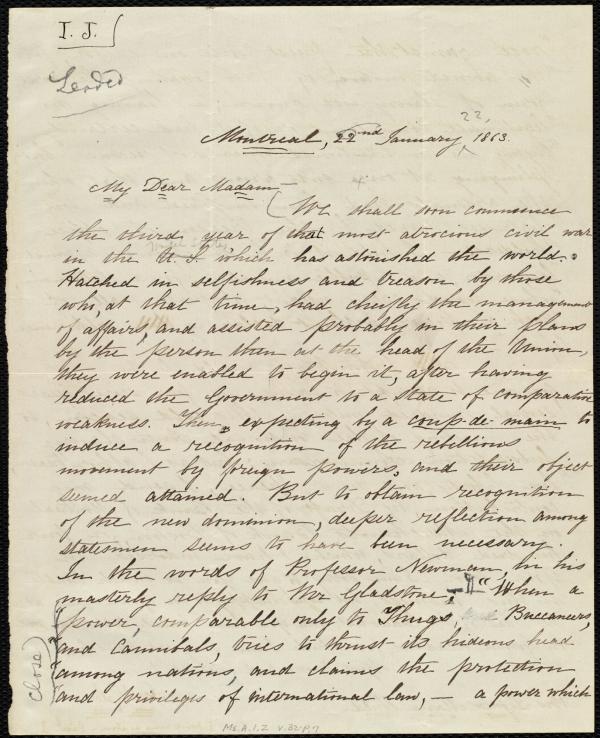 I. J.
Leaded
Montreal, 22nd January, 22, 1863.
My Dear Madam,
We shall soon commence
the third year of that most atrocious civil war
in the U. S. which has astonished the world.
Hatched in selfishness and treason by those
who, at that time, had cheifly the management
of affairs, and assisted probably in their plans
by the person then at the head of the Union,
they were enabled to begin it, after having
reduced the Government to a state of comparative
weakness. Then, expecting by a coup-de-main to
induce a recognition of the rebellious
movement by foreign powers, and their object
seemed attained. But to obtain recognition
of the new dominion, deeper reflection among
statesmen seems to have been necessary.
In the words of Professor Newman, in his
masterly reply to Mr Gladstone,—"When a
power, comparable only to Thugs, Buccaneers,
and Cannibals, tries to thrust its hideous head
among nations, and claims the protection
and privileges of international law,— a power which
Close
Ms. A. 1. 2 v. 32 p. 7